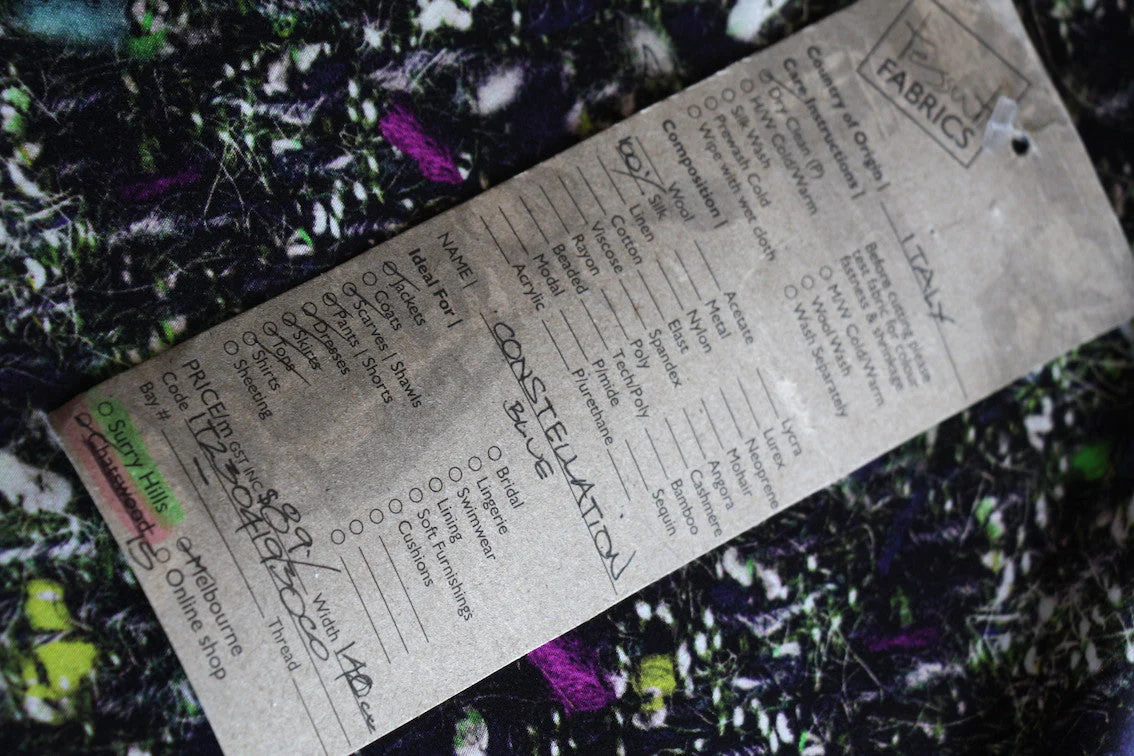 Tessuti
FABRICS
Country of Origin | ITALY
Care Instructions |
Dry Clean (P)
H/W Cold/Warm
Silk Wash
Prewash Cold
Wipe with wet cloth
Before cutting please
test fabric for colour
fastness & shrinkage.
M/W Cold/Warm
Wool Wash
Wash Separately
Composition |
Wool
100% Silk
Linen
Cotton
Viscose
Rayon
Beaded
Modal
Acrylic
Acetate
Metal
Nylon
Elast
Spandex
Poly
Tech/Poly
P/mide
P/urethane
Lycra
Lurex
Neoprene
Mohair
Angora
Cashmere
Bamboo
Sequin
NAME | CONSTELLATION
BLUE
Ideal For |
Jackets
Coats
Scarves | Shawls
Pants | Shorts
Dresses
Skirts
Tops
Shirts
Sheeting
Bridal
Lingerie
Swimwear
Lining
Soft Furnishings
Cushions
PRICE/m GST INC $89.- Width 140cm
Code IT230493000
Bay # Thread
Surry Hills
Chatswood
Melbourne
Online shop